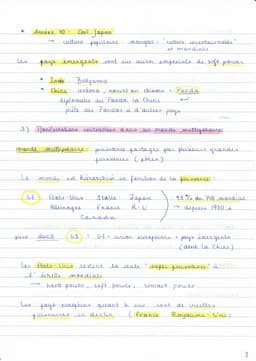 • Années 90 : Cool Japan
→ culture populaire mangas = "culture incontournable" et mondiale
Les pays émergents ont eux aussi empreints de soft power
• Inde : Bollywood
• Chine : cinéma, nouvel an chinois + Panda
diplomatie du Panda, la Chine
prête des Pandas à d'autres pays
3) Manifestations contrastées dans un monde multipolaire
monde multipolaire : puissance partagée par plusieurs grandes puissances (pôles)
Le monde est hiérarchisé en fonction de la puissance
G7 États-Unis Italie Japon
Allemagne France R-U
Canada
% du PIB mondial
→ depuis 19
puis G7 + union européenne + pays émergents
(dont la Chine)
Les États-Unis restent la seule "super puissance" à
l'échelle mondiale
→ hard power, soft power, smart power
Les pays européens quant à eux sont de vieilles
puissances en déclin (France Royaume-Uni)